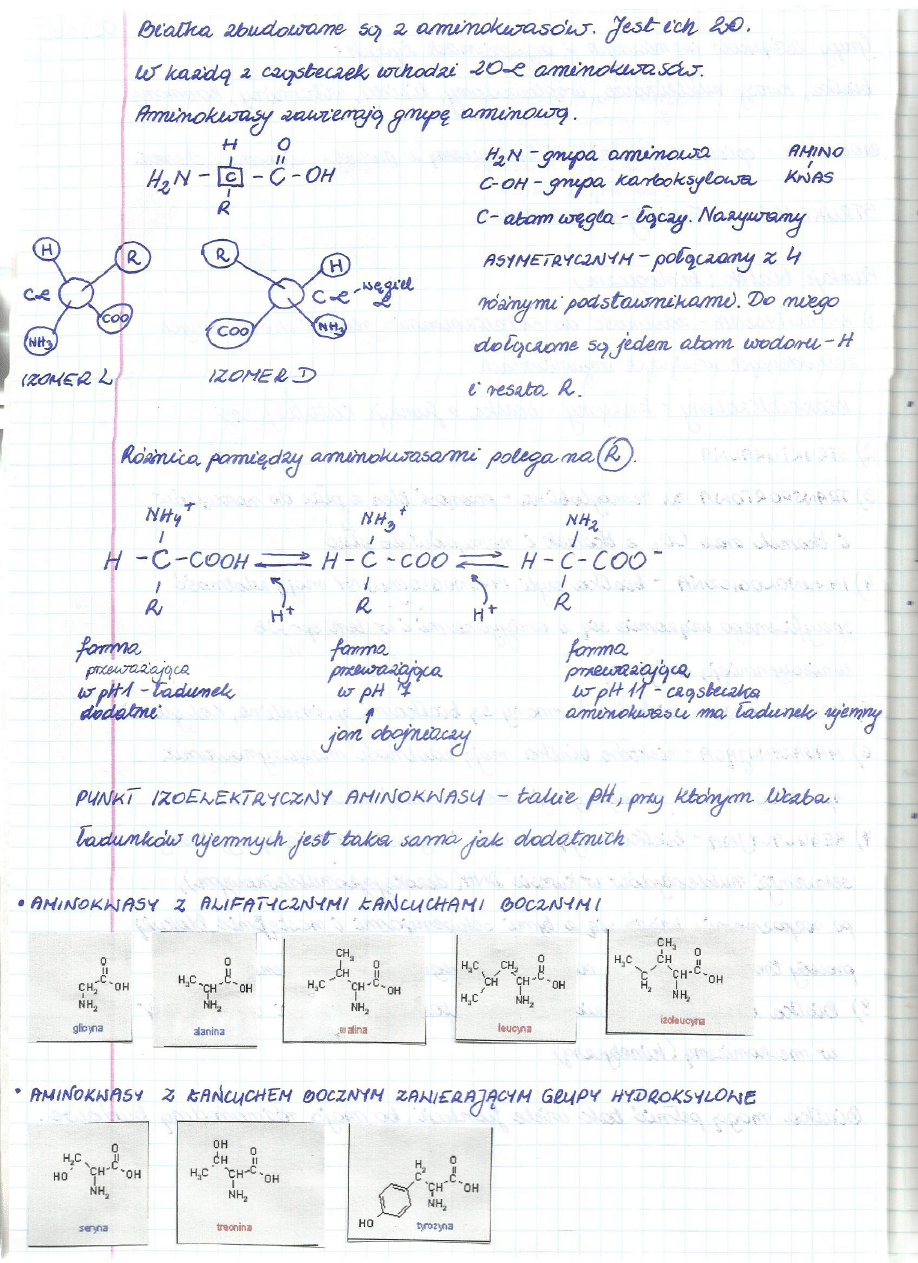 Białka zbudowane są z aminokwasów. Jest ich 20.
W każdą z cząsteczek wchodzi 20 L aminokwasów.
Aminokwasy zawierają grupę aminową.
H O
H₂N - C - C - OH
R
H₂N - grupa aminowa AMINO
C-OH - grupa karboksylowa KWAS
C - atom węgla - łączy. Nazywamy
ASYMETRYCZNYM - połączony z 4
różnymi podstawnikami. Do niego
dołączone są jeden atom wodoru - H
i reszta R.
H R
Cα
COO
NH₃
IZOMER L
R H
Cα - węgiel α
COO NH₃
IZOMER D
Różnica pomiędzy aminokwasami polega na R.
NH₄⁺ NH₃⁺ NH₂
H - C - COOH H - C - COO H - C - COO⁻
R H⁺ R H⁺ R
forma
przeważająca
w pH1 - ładunek
dodatni
forma
przeważająca
w pH 7
jon obojniaczy
forma
przeważająca
w pH 11 - cząsteczka
aminokwasu ma ładunek ujemny
PUNKT IZOELEKTRYCZNY AMINOKWASU - takie pH, przy którym liczba
ładunków ujemnych jest taka sama jak dodatnich
• AMINOKWASY Z ALIFATYCZNYMI ŁAŃCUCHAMI BOCZNYMI
O
CH₂ C OH
NH₂
glicyna
O
H₃C CH C OH
NH₂
alanina
CH₃ O
H₃C CH C OH
NH₂
walina
H₃C CH₂ O
CH CH C OH
H₃C NH₂
leucyna
CH₃
H₃C O
C CH C OH
H₂ NH₂
izoleucyna
• AMINOKWASY Z ŁAŃCUCHEM BOCZNYM ZAWIERAJĄCYM GRUPY HYDROKSYLOWE
H₂C O
HO CH C OH
NH₂
seryna
OH
CH O
H₃C CH C OH
NH₂
treonina
H₂ O
C CH C OH
NH₂
HO
tyrozyna